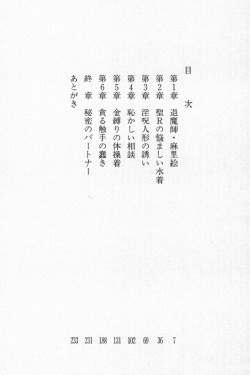 目次
第1章 退魔師・麻里絵 7
第2章 聖Rの悩ましい水着 36
第3章 淫呪人形の誘い 69
第4章 恥かしい相談 102
第5章 金縛りの体操着 131
第6章 貪る触手の蠢き 188
終章 秘密のパートナー 231
あとがき 233